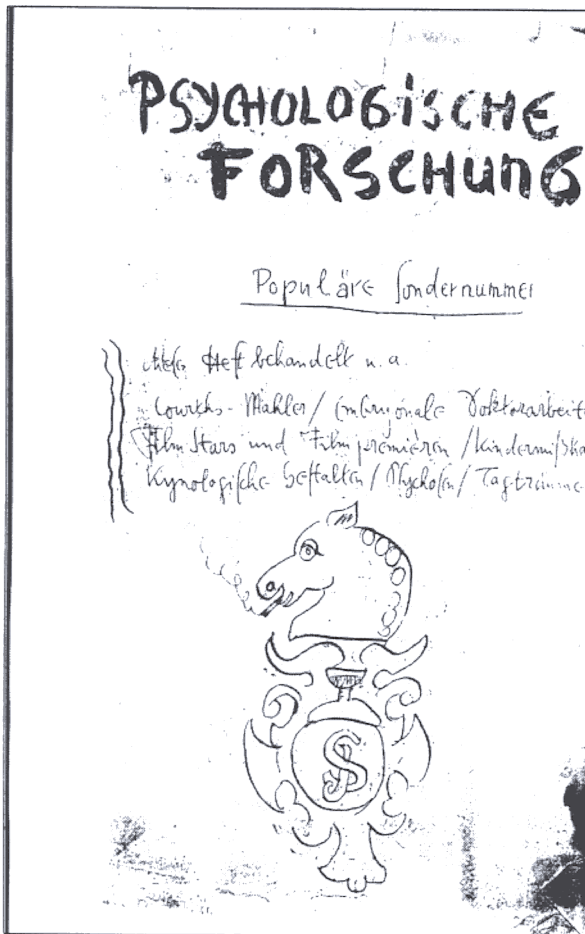 PSYCHOLOGiSCHE
FORSCHUNG
Populäre Sondernummer
Heft behandelt u. a.
Courths-Mahler / Embryonale Doktorarbeite
Filmstars und Filmpremièren / Kindermißha
Kynologische Gestalten / Psychosen / Tagträume